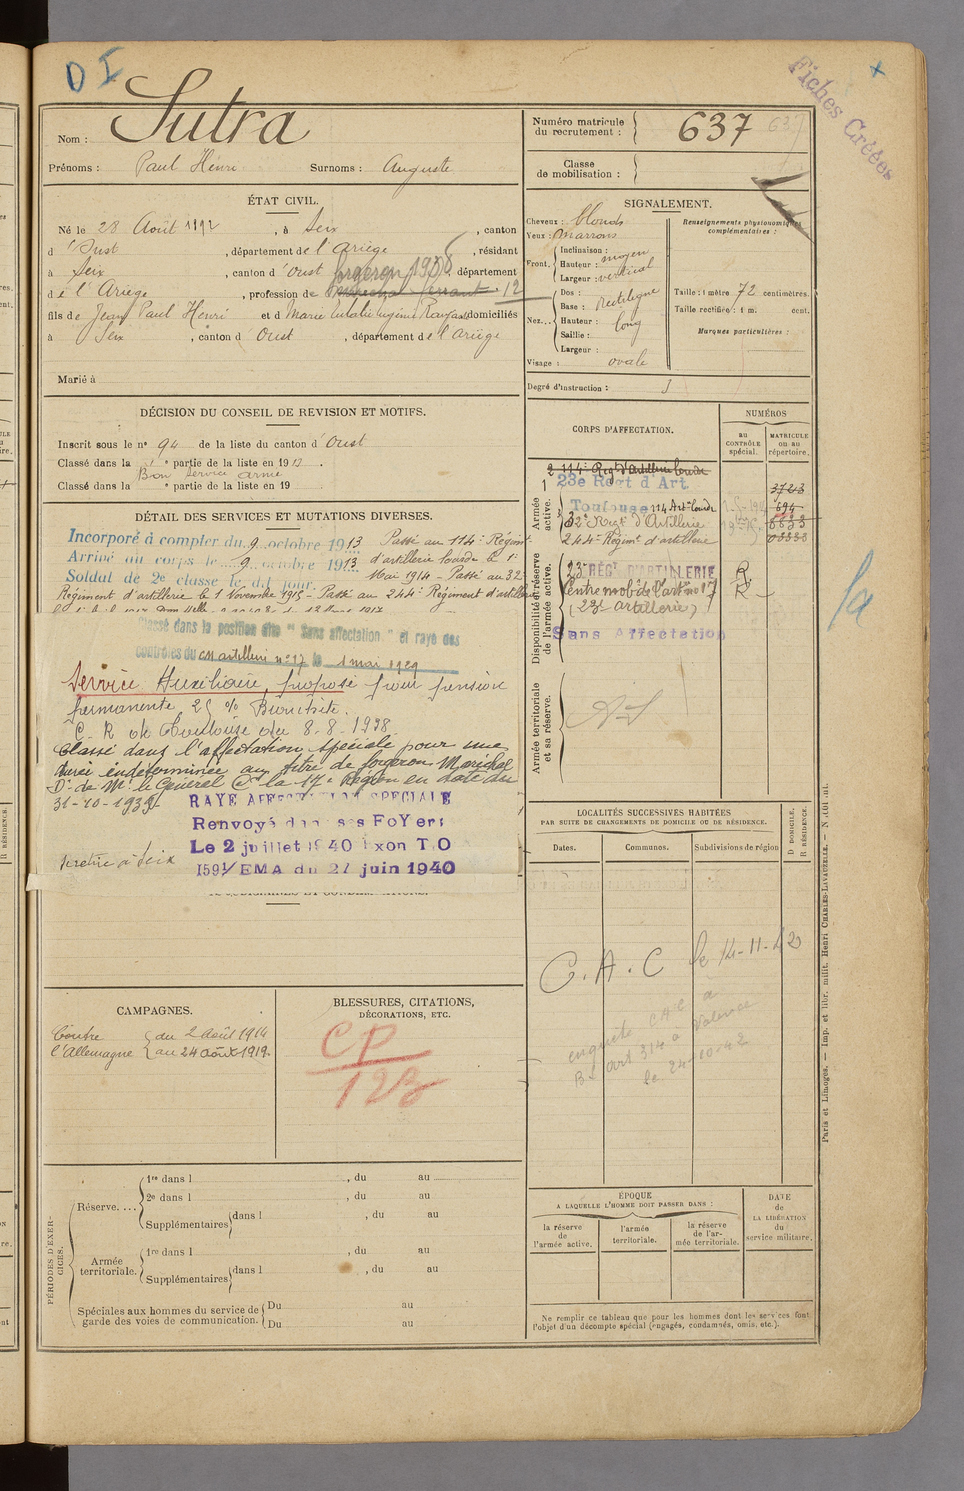 D I
Fiches Créées
Nom : Sutra
Prénoms : Paul Henri Surnoms : Auguste
Numéro matricule du recrutement : 637
Classe de mobilisation :
ÉTAT CIVIL.
Né le 28 Août 1892, à Seix, canton
d'Oust, département de l'Ariège, résidant
à Seix, canton d'Oust, département
de l'Ariège, profession de forgeron
fils de Jean Paul Henri et d Marie Eulalie domiciliés
à Seix, canton d'Oust, département de l'Ariège
Marié à
SIGNALEMENT.
Cheveux : blonds
Yeux : marrons
Front. Inclinaison :
Hauteur : moyen
Largeur : vertical
Nez... Dos :
Base : Rectiligne
Hauteur : long
Saillie :
Largeur :
Visage : ovale
Renseignements physionomiques complémentaires :
Taille : 1 mètre 72 centimètres.
Taille rectifiée : 1 m. cent.
Marques particulières :
Degré d'instruction :
DÉCISION DU CONSEIL DE REVISION ET MOTIFS.
Inscrit sous le n° 94 de la liste du canton d'Oust
Classé dans la 1e partie de la liste en 1913.
Bon service armé
Classé dans la e partie de la liste en 19
DÉTAIL DES SERVICES ET MUTATIONS DIVERSES.
Incorporé à compter du 9 octobre 1913 Passé au 114e Régimt
Arrivé au corps le 9 octobre 1913 d'artillerie lourde le 1er
Soldat de 2e classe le dit jour. Mai 1914 - Passé au 32e
Régiment d'artillerie le 1 Novembre 1915 - Passé au 244e Régiment d'artillerie
Classé dans la position dite "Sans affectation" et rayé des
contrôles du CM artillerie n° 17 le 1 mai 1929
Service Auxiliaire, proposé pour pension
permanente 25 % Bronchite.
C. R de Toulouse du 8.8.1938
Classé dans l'affectation spéciale pour une
durée indéterminée au titre de forgeron Maréchal
Dn de Mr le Général Ct la 17e Région en date du
31-10-1939
RAYE AFFECTATION SPECIALE
Renvoyé dans ses FoYers
Le 2 juillet 1940 Exon T.O
1591/EMA du 27 juin 1940
se retire à Seix
CORPS D'AFFECTATION.
NUMÉROS
AU CONTRÔLE spécial.
MATRICULE OU AU répertoire.
Armée active.
114e Regt d'Artillerie lourde
23e Régt d'Art
Toulouse 114 Art. lourde 694
32e Regt d'Artillerie
244e Régimt d'artillerie
Disponibilité et réserve de l'armée active.
23e RÉGt D'ARTILLERIE R
Centre mob de l'artie no 17 R
(23e artillerie)
Sans Affectation
Armée territoriale et sa réserve.
LOCALITÉS SUCCESSIVES HABITÉES
PAR SUITE DE CHANGEMENTS DE DOMICILE OU DE RÉSIDENCE.
Dates. Communes. Subdivisions de région D DOMICILE. R RÉSIDENCE.
C.A.C le 14-11-42
enquête CAC a
art 314 à Valence
le 24-10-42
CAMPAGNES.
Contre l'Allemagne
du 2 août 1914
au 24 août 1919
BLESSURES, CITATIONS,
DÉCORATIONS, ETC.
CP
123
PÉRIODES D'EXERCICES.
Réserve....
1re dans l , du au
2e dans l , du au
Supplémentaires dans l , du au
Armée territoriale.
1re dans l , du au
Supplémentaires dans l , du au
Spéciales aux hommes du service de garde des voies de communication.
Du au
Du au
ÉPOQUE
A LAQUELLE L'HOMME DOIT PASSER DANS :
la réserve de l'armée active.
l'armée territoriale.
la réserve de l'armée territoriale.
DATE de LA LIBÉRATION du service militaire.
Ne remplir ce tableau que pour les hommes dont les services font
l'objet d'un décompte spécial (engagés, condamnés, omis, etc.).
Paris et Limoges. — Imp. et libr. milit. Henri CHARLES-LAVAUZELLE.